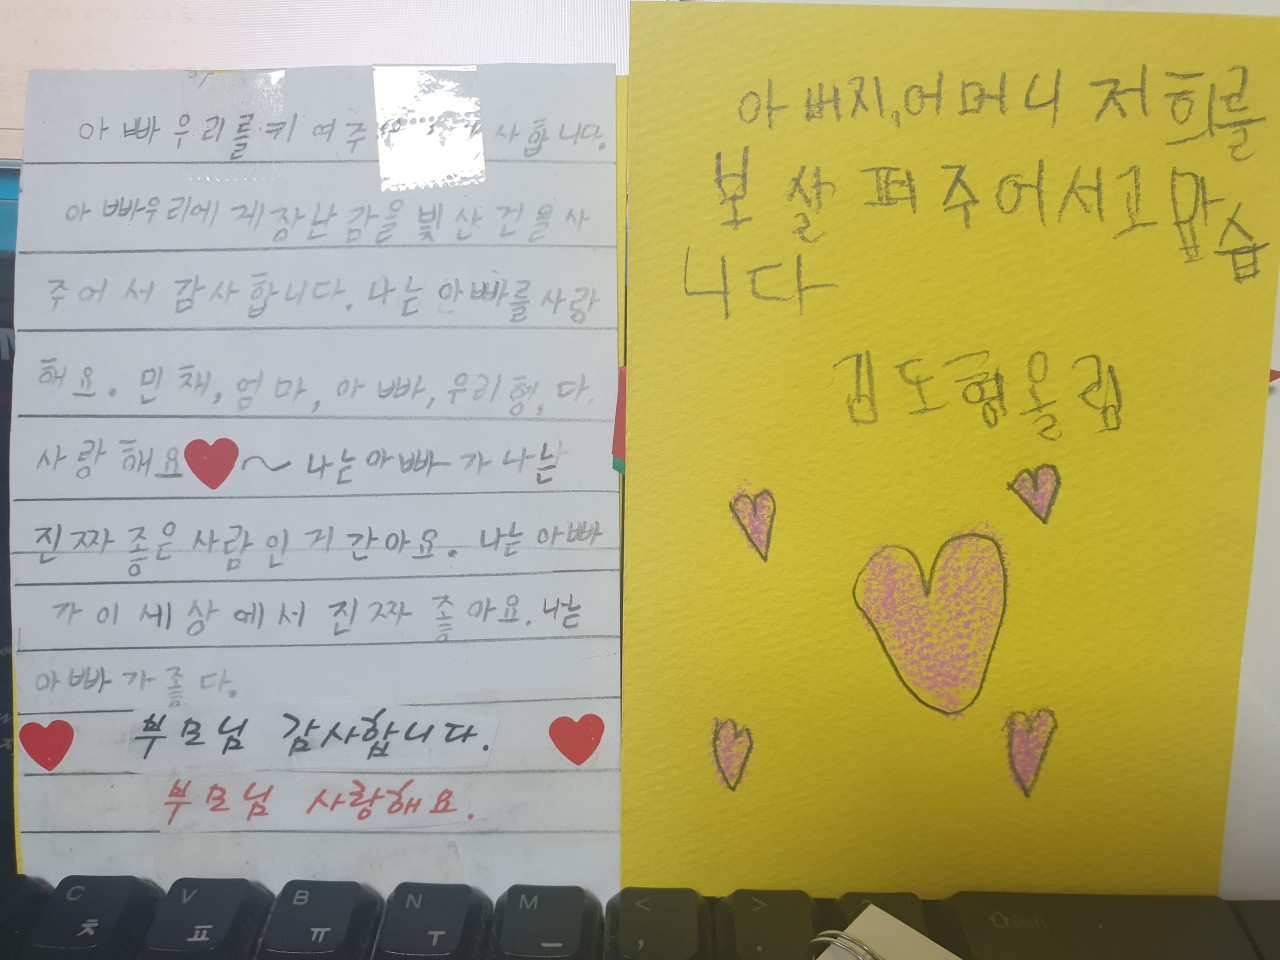 아빠우리를키여주 사합니다.
아빠우리에게장난감을빛산건을사
주어서감사합니다. 나는아빠를사랑
해요. 민채, 엄마, 아빠, 우리형, 다.
사랑해요 ~ 나는아빠가나는
진짜좋은사람인거간아요. 나는아빠
가이세상에서진짜좋아요. 나는
아빠가좋다.
부모님 감사합니다.
부모님 사랑해요.
아버지,어머니 저희를
보살펴주어서고맙습
니다
김도형올림
C ㅊ
V ㅍ
B ㅠ
N ㅜ
M ㅡ
< ,
> .
Shift